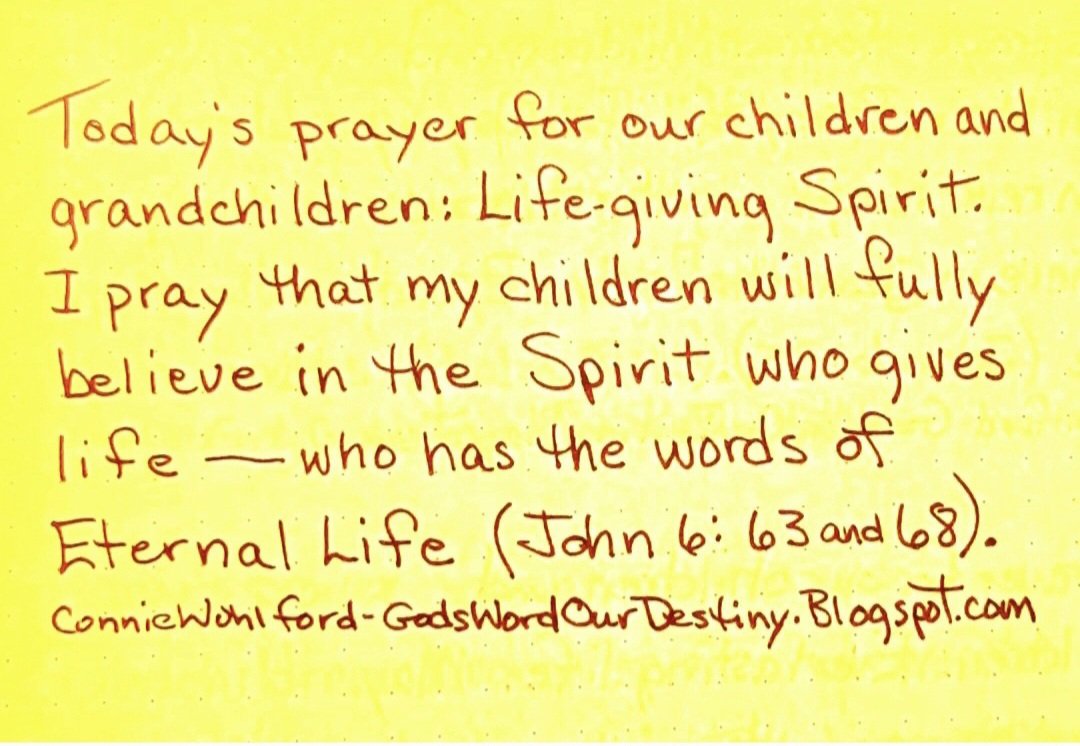 Today's prayer for our children and
grandchildren: Life-giving Spirit.
I pray that my children will fully
believe in the Spirit who gives
life — who has the words of
Eternal Life (John 6: 63 and 68).
ConnieWohlford-GodsWordOurDestiny.Blogspot.com